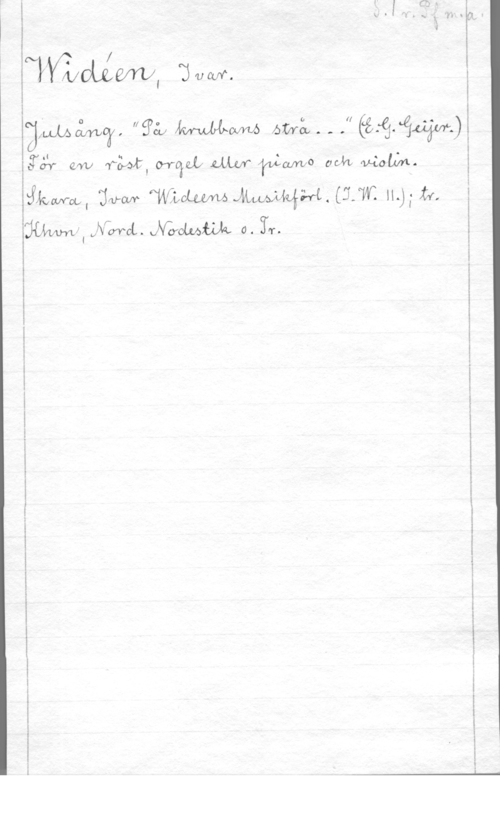 S. 1 r. Pf m.a.
Widéen, Ivar.
Julsång. "På krubbans strå..." (E.G. Geijer.)
För en röst, orgel eller piano och violin.
Skara, Ivar Wideens Musikförl. (I.W. 11.); tr.
Khvn, Nord. Nodestik o. Tr.